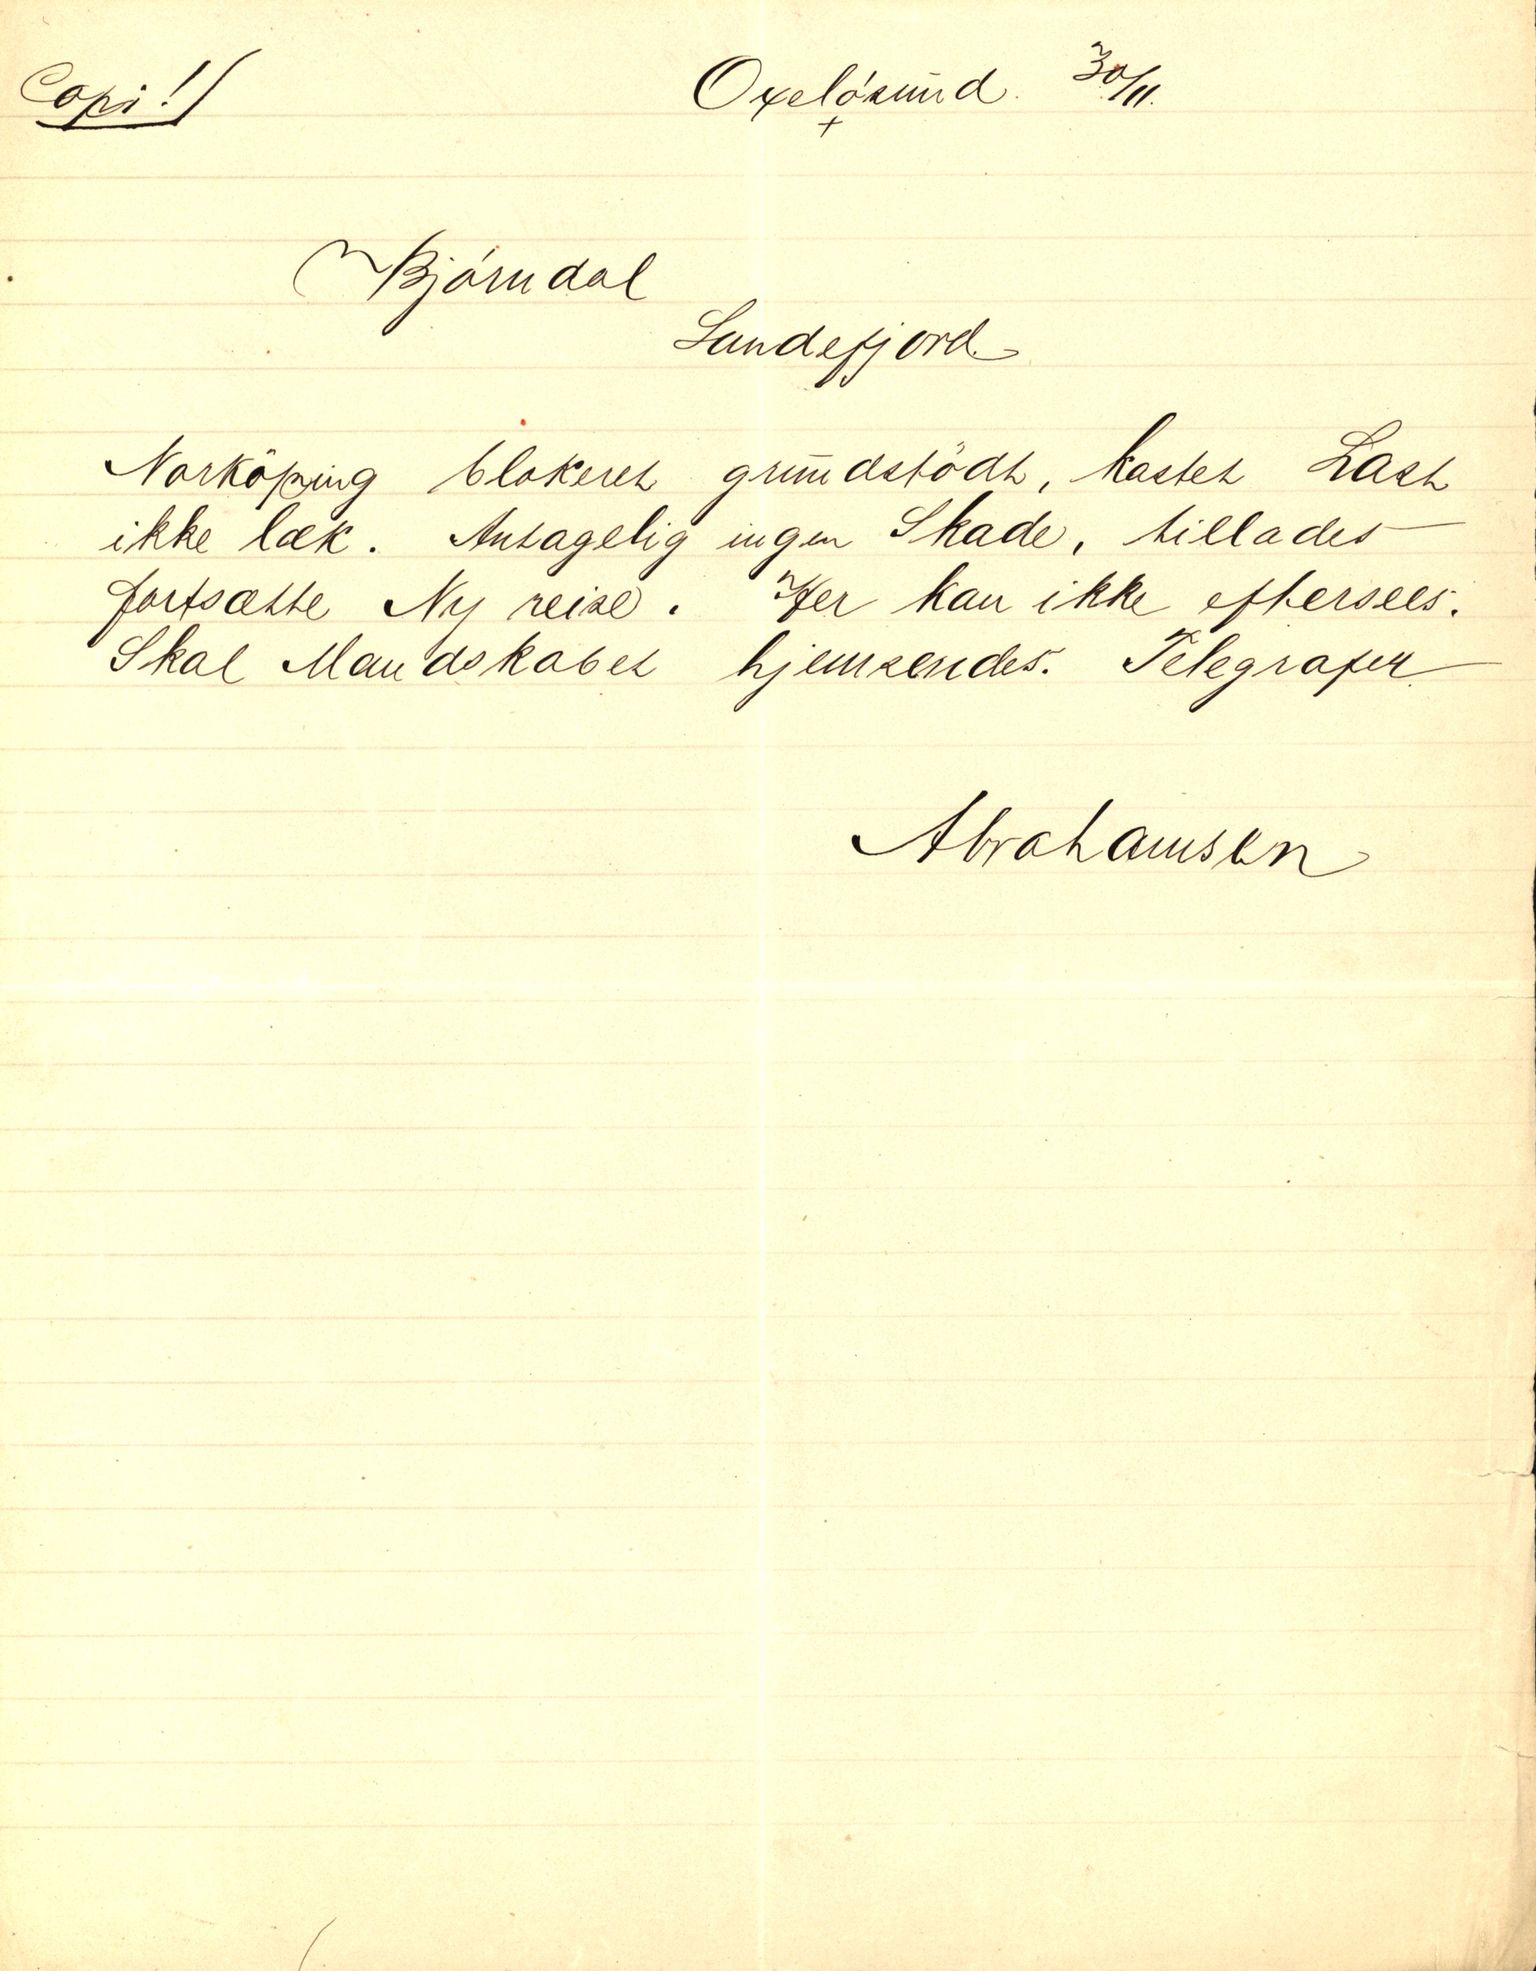 Copi! Oxelósund. 30/11.
Bjórndal
Sandefjord
Norköping blokeret grundstödt, kastet Last
ikke læk. Antagelig ingen Skade, tillades
fortsætte Ny reise. Her kan ikke eftersees.
Skal Mandskabet hjemsendes. Telegrafer
Abrahamsen